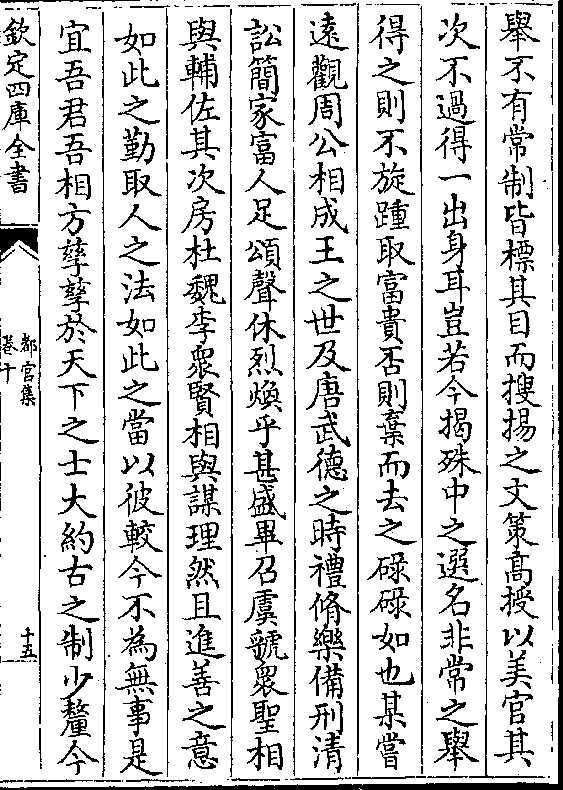 舉不有常制皆標其目而搜揚之丈策髙授以美官其
次不過得一出身耳豈若今揭殊中之選名非常之舉
得之則不旋踵取富貴否則棄而去之碌碌如也某嘗
遠觀周公相成王之世及唐武德之時禮脩樂備刑清
訟簡家富人足頌聲休烈煥乎甚盛畢召虞虢衆聖相
與輔佐其次房杜魏李衆賢相與謀理然且進善之意
如此之勤取人之法如此之當以彼較今不為無事是
宜吾君吾相方孳孳於天下之士大約古之制少釐今
欽定四庫全書
都官集
卷十
十五